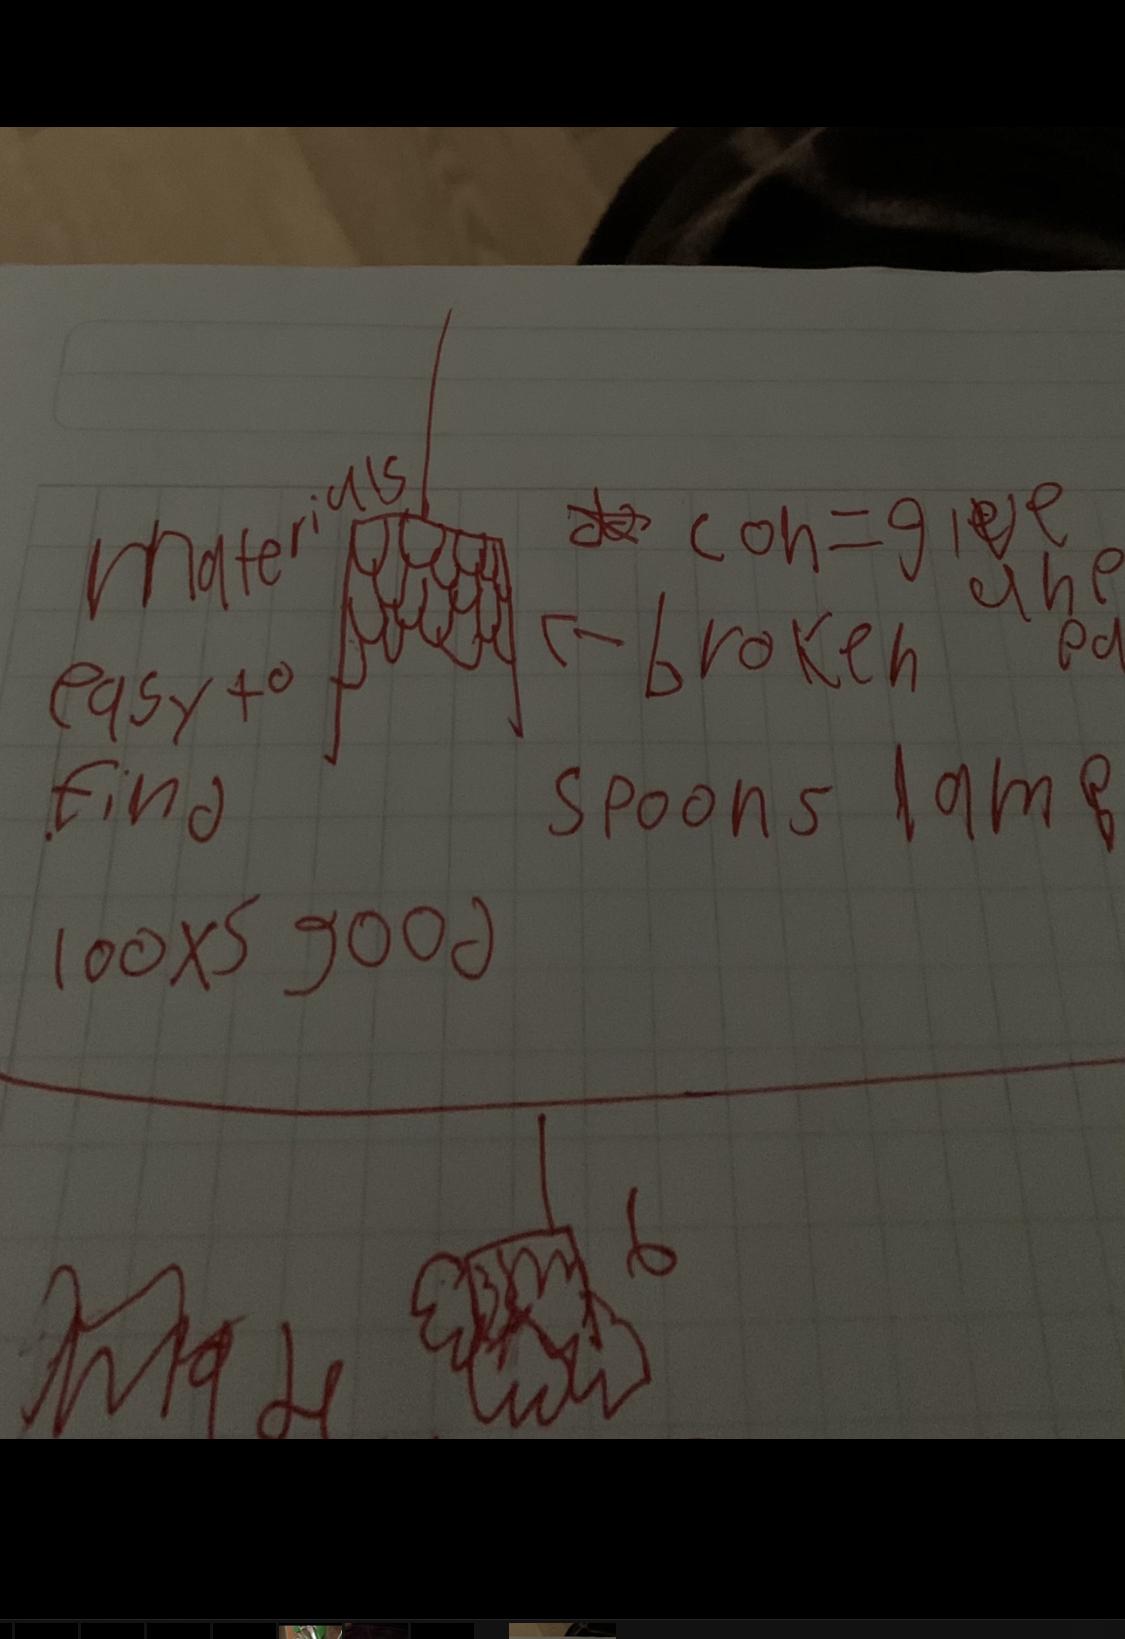 materials
easy to
find
100x5 good
con=gieve
une
ea
←broken
spoons lamp
Made
b